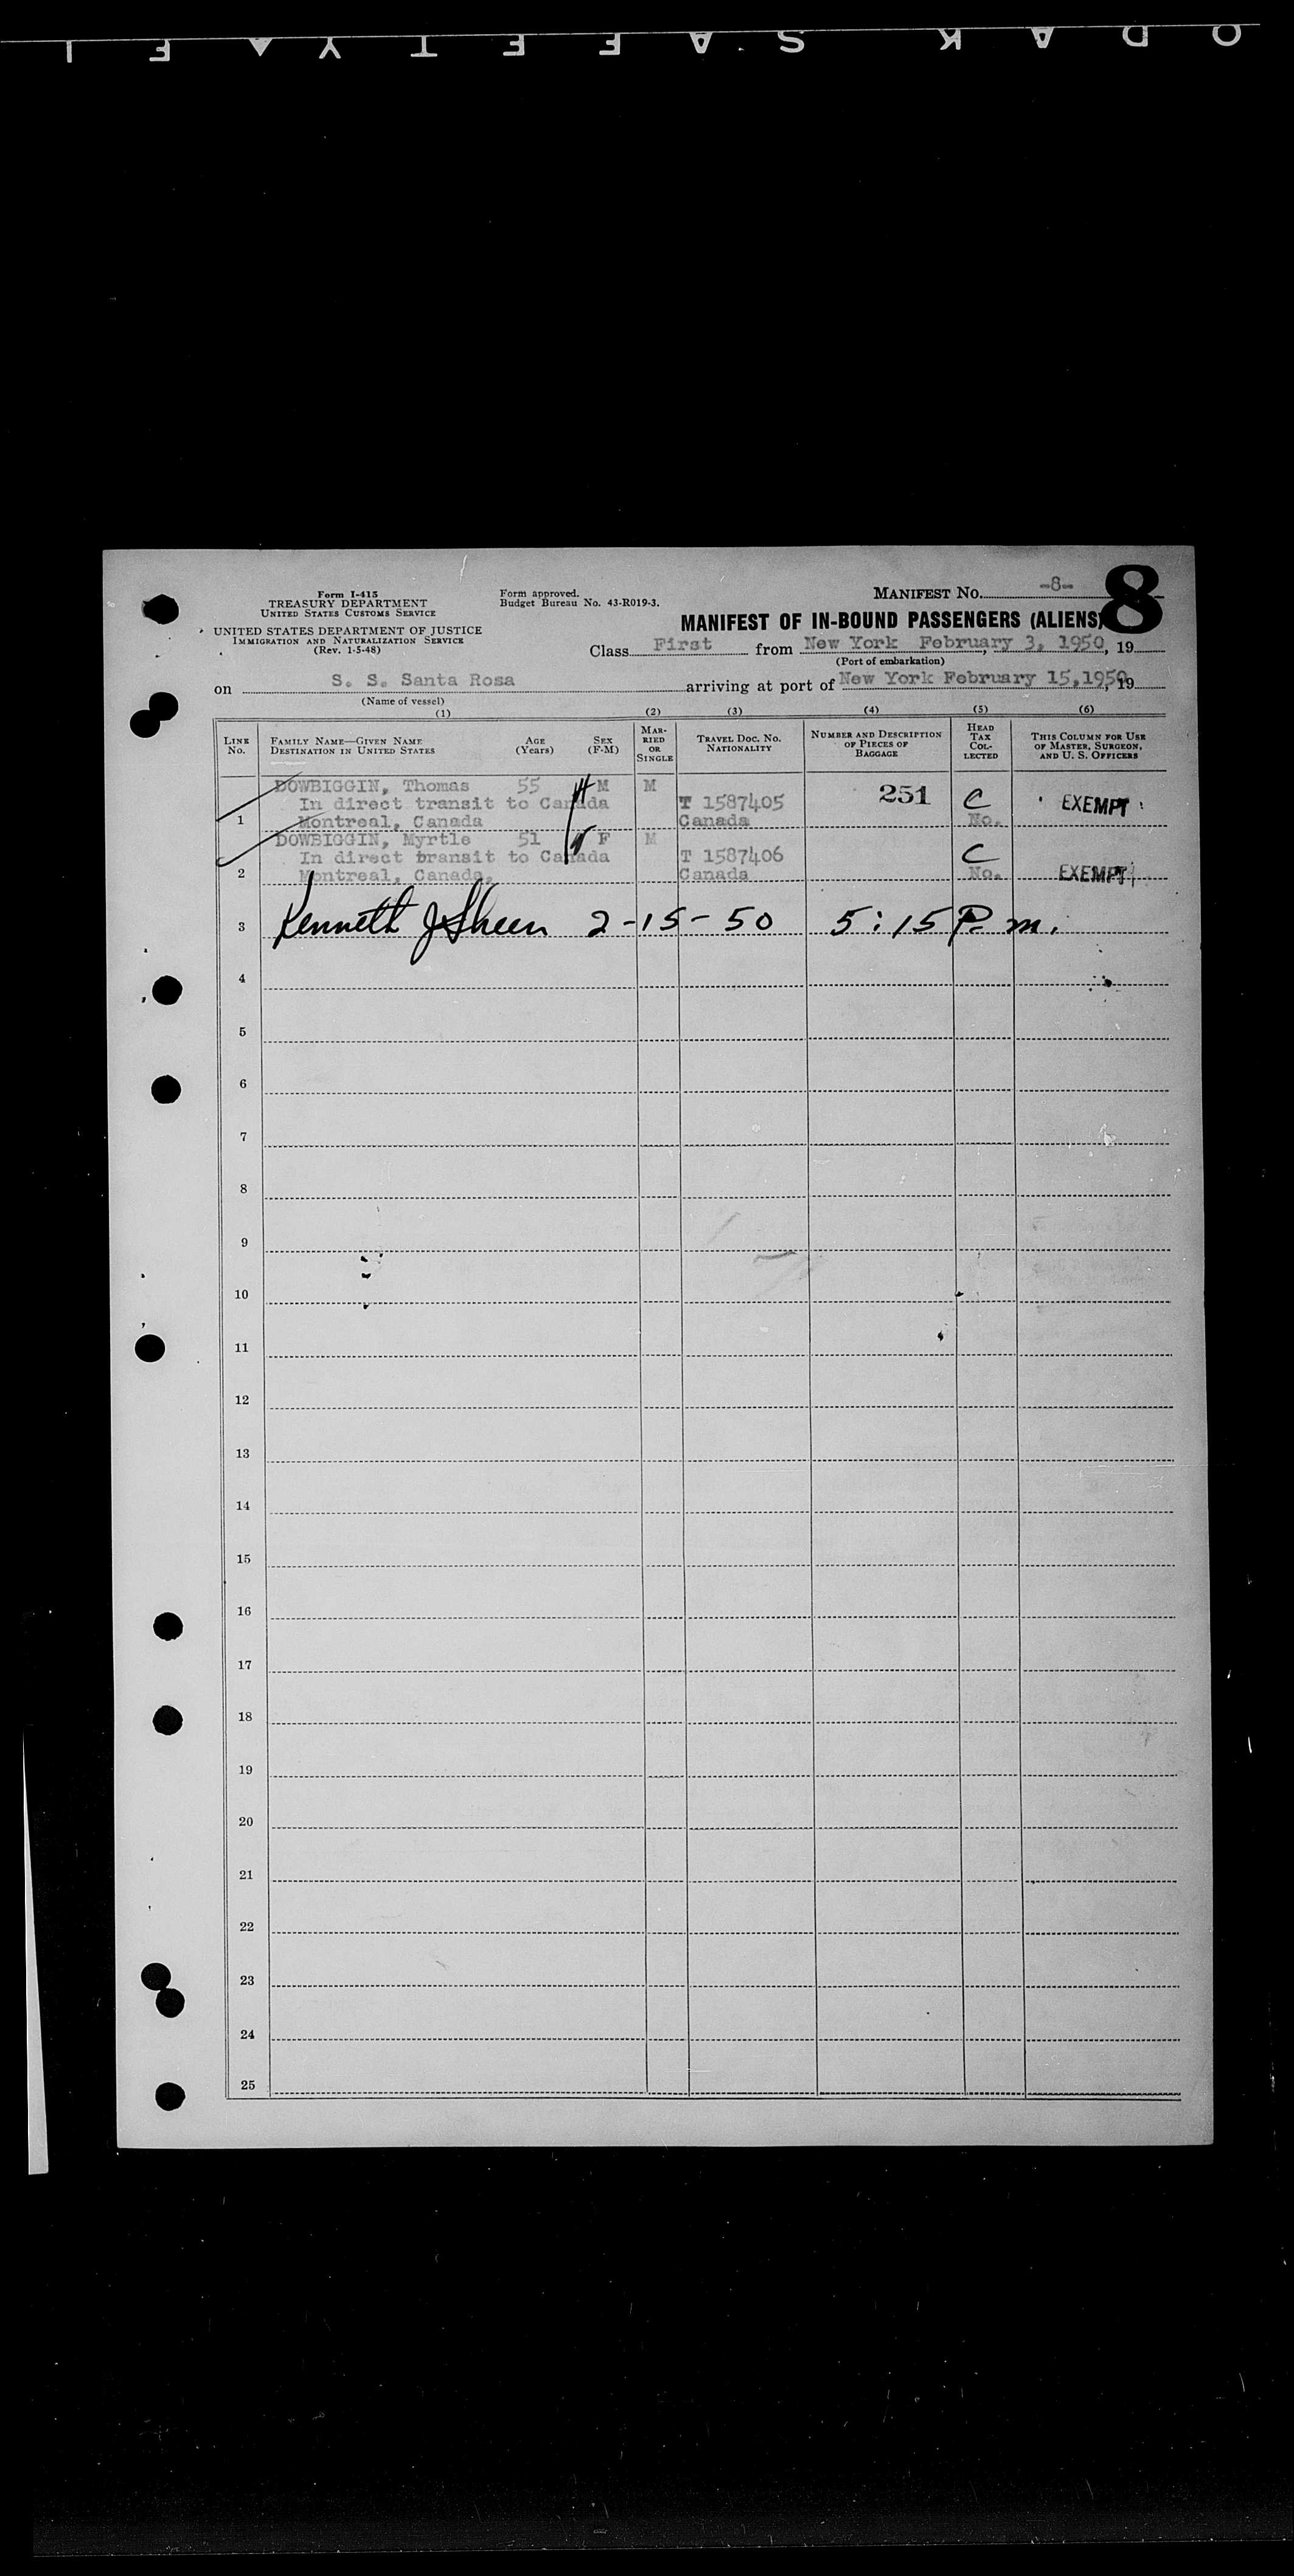 KODAK SAFETY FI
Form I-415
TREASURY DEPARTMENT
UNITED STATES CUSTOMS SERVICE
UNITED STATES DEPARTMENT OF JUSTICE
IMMIGRATION AND NATURALIZATION SERVICE
(Rev. 1-5-48)
Form approved.
Budget Bureau No. 43-R019-3.
MANIFEST No. -8-
8
MANIFEST OF IN-BOUND PASSENGERS (ALIENS)
Class First from New York February 3, 1950, 19
(Port of embarkation)
on S. S. Santa Rosa arriving at port of New York February 15,1950, 19
(Name of vessel)
(1) (2) (3) (4) (5) (6)
LINE No.
FAMILY NAME—GIVEN NAME
DESTINATION IN UNITED STATES
AGE (Years)
SEX (F-M)
MARRIED OR SINGLE
TRAVEL DOC. NO.
NATIONALITY
NUMBER AND DESCRIPTION OF PIECES OF BAGGAGE
HEAD TAX COLLECTED
THIS COLUMN FOR USE OF MASTER, SURGEON, AND U. S. OFFICERS
DOWBIGGIN, Thomas 55 M M
In direct transit to Canada T 1587405 251 C EXEMPT
1 Montreal, Canada Canada No.
DOWBIGGIN, Myrtle 51 F M
In direct transit to Canada T 1587406 C
2 Montreal, Canada. Canada No. EXEMPT
3 Kenneth J Sheen 2-15-50 5:15 P.m.
4
5
6
7
8
9
10
11
12
13
14
15
16
17
18
19
20
21
22
23
24
25